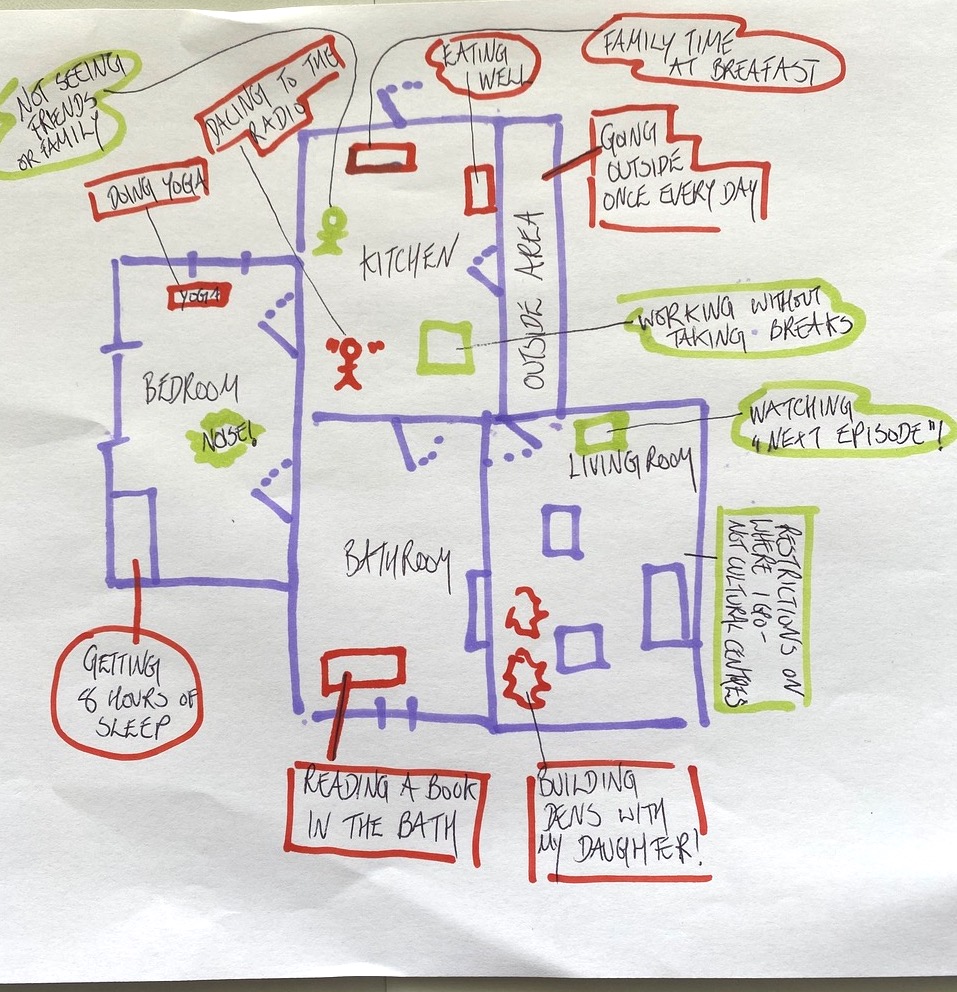 NOT SEEING
FRIENDS
OR FAMILY
DACING TO THE
RADIO
EATING
WELL
FAMILY TIME
AT BREAFAST
DOING YOGA
GOING
OUTSIDE
ONCE EVERY DAY
YOGA
KITCHEN
OUTSIDE AREA
WORKING WITHOUT
TAKING BREAKS
BEDROOM
NOISE!
WATCHING
"NEXT EPISODE"!
LIVING ROOM
BATHROOM
RESTRICTIONS ON
WHERE I GO-
NOT CULTURAL CENTRES
GETTING
8 HOURS OF
SLEEP
READING A BOOK
IN THE BATH
BUILDING
DENS WITH
MY DAUGHTER!